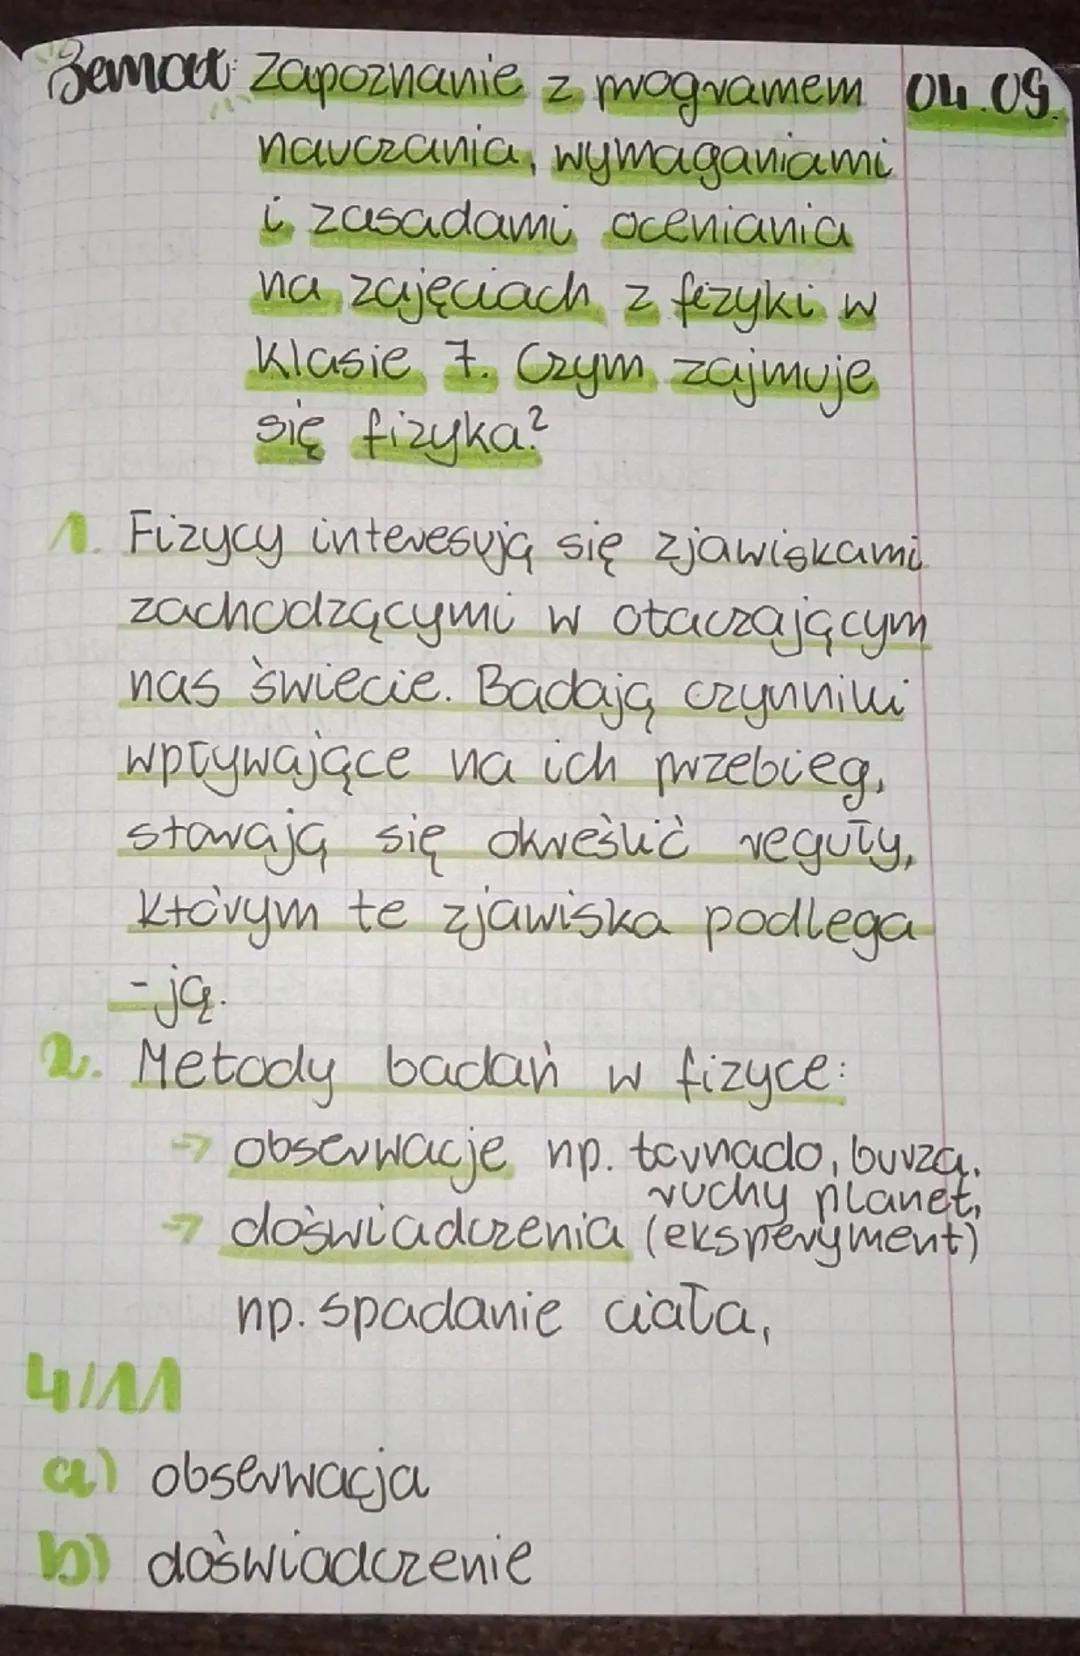 Temat: Zapoznanie z programem 04.09.
nauczania, wymaganiami
i zasadami oceniania
na zajęciach z fizyki w
klasie 7. Czym zajmuje
się fizyka?
1. Fizycy interesują się zjawiskami
zachodzącymi w otaczającym
nas świecie. Badają czynniki
wpływające na ich przebieg,
starają się określić reguły,
którym te zjawiska podlega
-ją.
2. Metody badań w fizyce:
→ obserwacje np. tornado, burza,
ruchy planet,
→ doświadczenia (eksperyment)
np. spadanie ciała,
4/11
a) obserwacja
b) doświadczenie